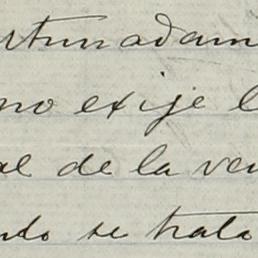 rtunadam
no exije l
al de la ve
ndo se trata